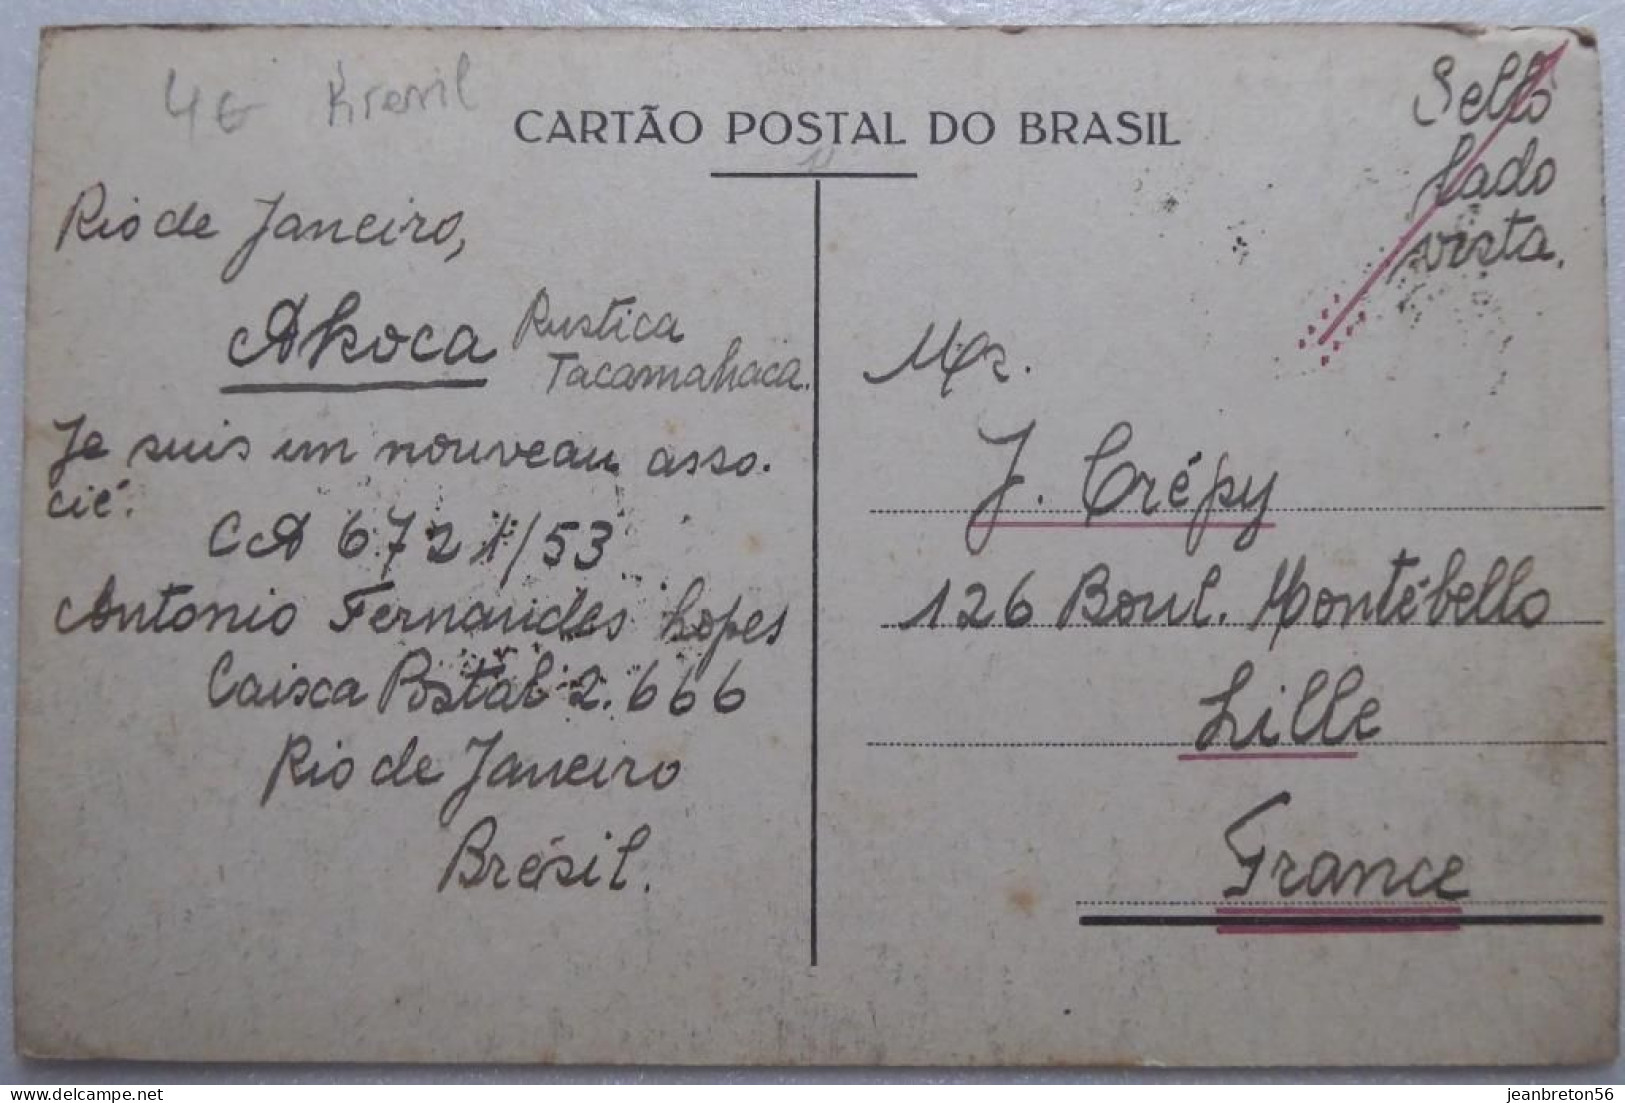 4€ Bresil
CARTÃO POSTAL DO BRASIL
Sello
lado
vista.
Rio de Janeiro,
Akoca Rustica
Tacamahaca.
Je suis um nouveau asso.
cié.
CA 6721/53
Antonio Fernandes Lopes
Caixa Postal 2.666
Rio de Janeiro
Brésil.
Mr.
J. Crépy
126 Boul. Montébello
Lille
France
jeanbreton56